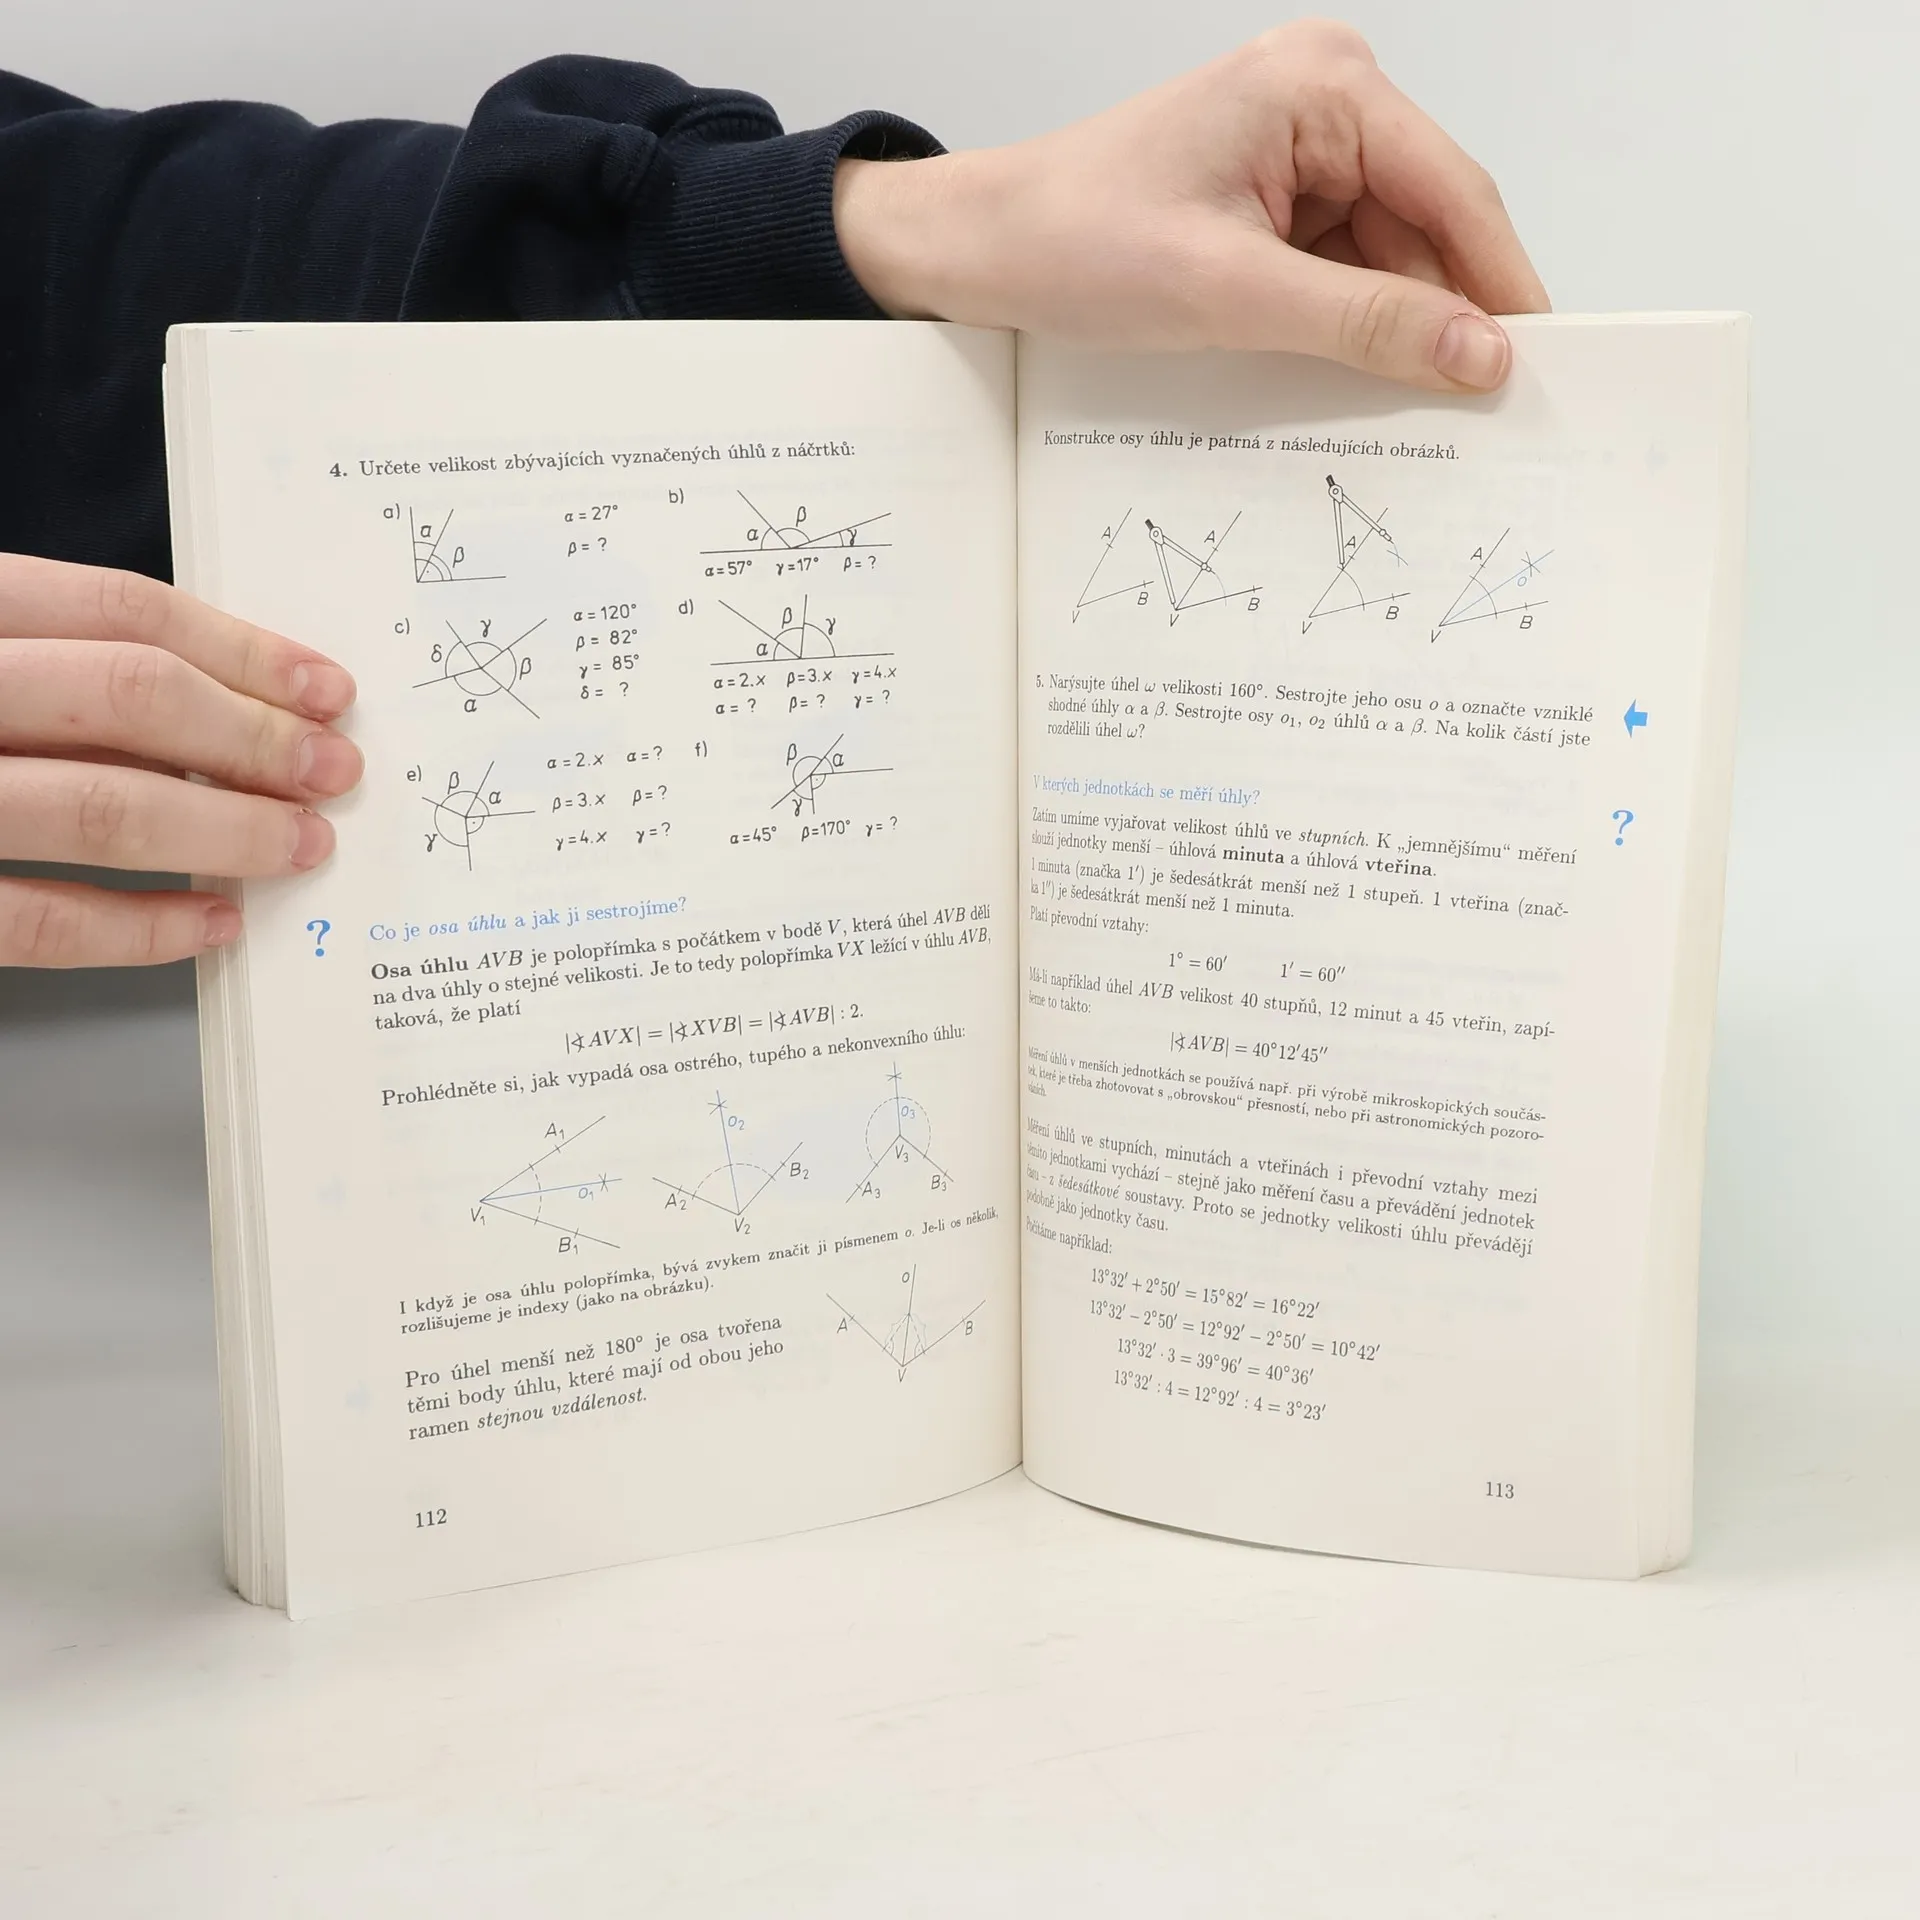 4. Určete velikost zbývajících vyznačených úhlů z náčrtků:
a)
α
β
α = 27°
β = ?
b)
α
β
γ
α = 57° γ = 17° β = ?
c)
δ
γ
β
α
α = 120°
β = 82°
γ = 85°
δ = ?
d)
α
β
γ
α = 2.x β = 3.x γ = 4.x
α = ? β = ? γ = ?
e)
β
α
γ
α = 2.x α = ?
β = 3.x β = ?
γ = 4.x γ = ?
f)
β
α
γ
α = 45° β = 170° γ = ?
?
Co je osa úhlu a jak ji sestrojíme?
Osa úhlu AVB je polopřímka s počátkem v bodě V, která úhel AVB dělí
na dva úhly o stejné velikosti. Je to tedy polopřímka VX ležící v úhlu AVB,
taková, že platí
|∢AVX| = |∢XVB| = |∢AVB| : 2.
Prohlédněte si, jak vypadá osa ostrého, tupého a nekonvexního úhlu:
A₁
o₁
V₁
B₁
o₂
A₂
B₂
V₂
o₃
V₃
A₃
B₃
I když je osa úhlu polopřímka, bývá zvykem značit ji písmenem o. Je-li os několik,
rozlišujeme je indexy (jako na obrázku).
Pro úhel menší než 180° je osa tvořena
těmi body úhlu, které mají od obou jeho
ramen stejnou vzdálenost.
o
A
B
V
112
Konstrukce osy úhlu je patrná z následujících obrázků.
A
B
V
A
B
V
A
B
V
A
o
B
V
5. Narýsujte úhel ω velikosti 160°. Sestrojte jeho osu o a označte vzniklé
shodné úhly α a β. Sestrojte osy o₁, o₂ úhlů α a β. Na kolik částí jste
rozdělili úhel ω?
V kterých jednotkách se měří úhly?
?
Zatím umíme vyjařovat velikost úhlů ve stupních. K „jemnějšímu“ měření
slouží jednotky menší – úhlová minuta a úhlová vteřina.
1 minuta (značka 1′) je šedesátkrát menší než 1 stupeň. 1 vteřina (znač-
ka 1″) je šedesátkrát menší než 1 minuta.
Platí převodní vztahy:
1° = 60′ 1′ = 60″
Má-li například úhel AVB velikost 40 stupňů, 12 minut a 45 vteřin, zapí-
šeme to takto:
|∢AVB| = 40°12′45″
Měření úhlů v menších jednotkách se používá např. při výrobě mikroskopických součás-
tek, které je třeba zhotovovat s „obrovskou“ přesností, nebo při astronomických pozoro-
váních.
Měření úhlů ve stupních, minutách a vteřinách i převodní vztahy mezi
těmito jednotkami vychází – stejně jako měření času a převádění jednotek
času – z šedesátkové soustavy. Proto se jednotky velikosti úhlu převádějí
podobně jako jednotky času.
Počítáme například:
13°32′ + 2°50′ = 15°82′ = 16°22′
13°32′ − 2°50′ = 12°92′ − 2°50′ = 10°42′
13°32′ · 3 = 39°96′ = 40°36′
13°32′ : 4 = 12°92′ : 4 = 3°23′
113